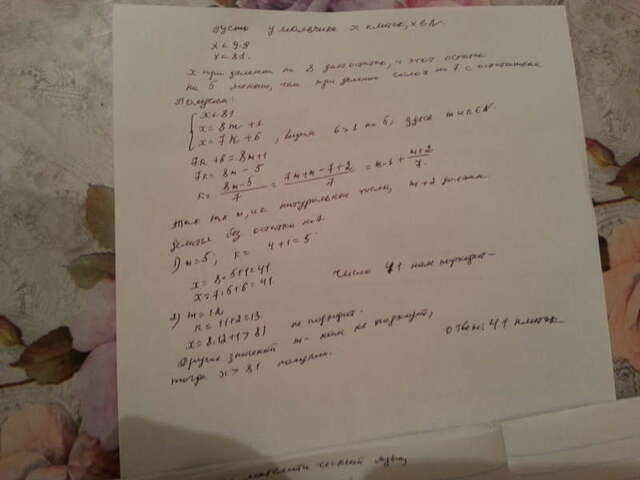 Пусть у мальчика x клеток, x∈N.
x < 9·9
x < 81.
x при делении на 8 дает остаток, и этот остаток
на 5 меньше, чем при делении числа на 7 с остатком
Получаем:
x < 81
x = 8m + 1
x = 7k + 6, 6 > 1 на 5, здесь m и k ∈ N.
7k + 6 = 8m + 1
7k = 8m - 5
k = (8m-5)/7 = (7m+m-7+2)/7 = m-1 + (m+2)/7.
Так как m, k натуральные числа, m+2 должна
делится без остатка на 7
1) m=5, k= 4+1=5.
x = 8·5+1=41
x = 7·5+6=41. Число 41 нам подходит.
2) m=12
k = 11+2=13
x = 8·12+1 > 81 не подходит.
Других значений m нам не подходит,
тогда x > 81 получим. Ответ: 41 клеток